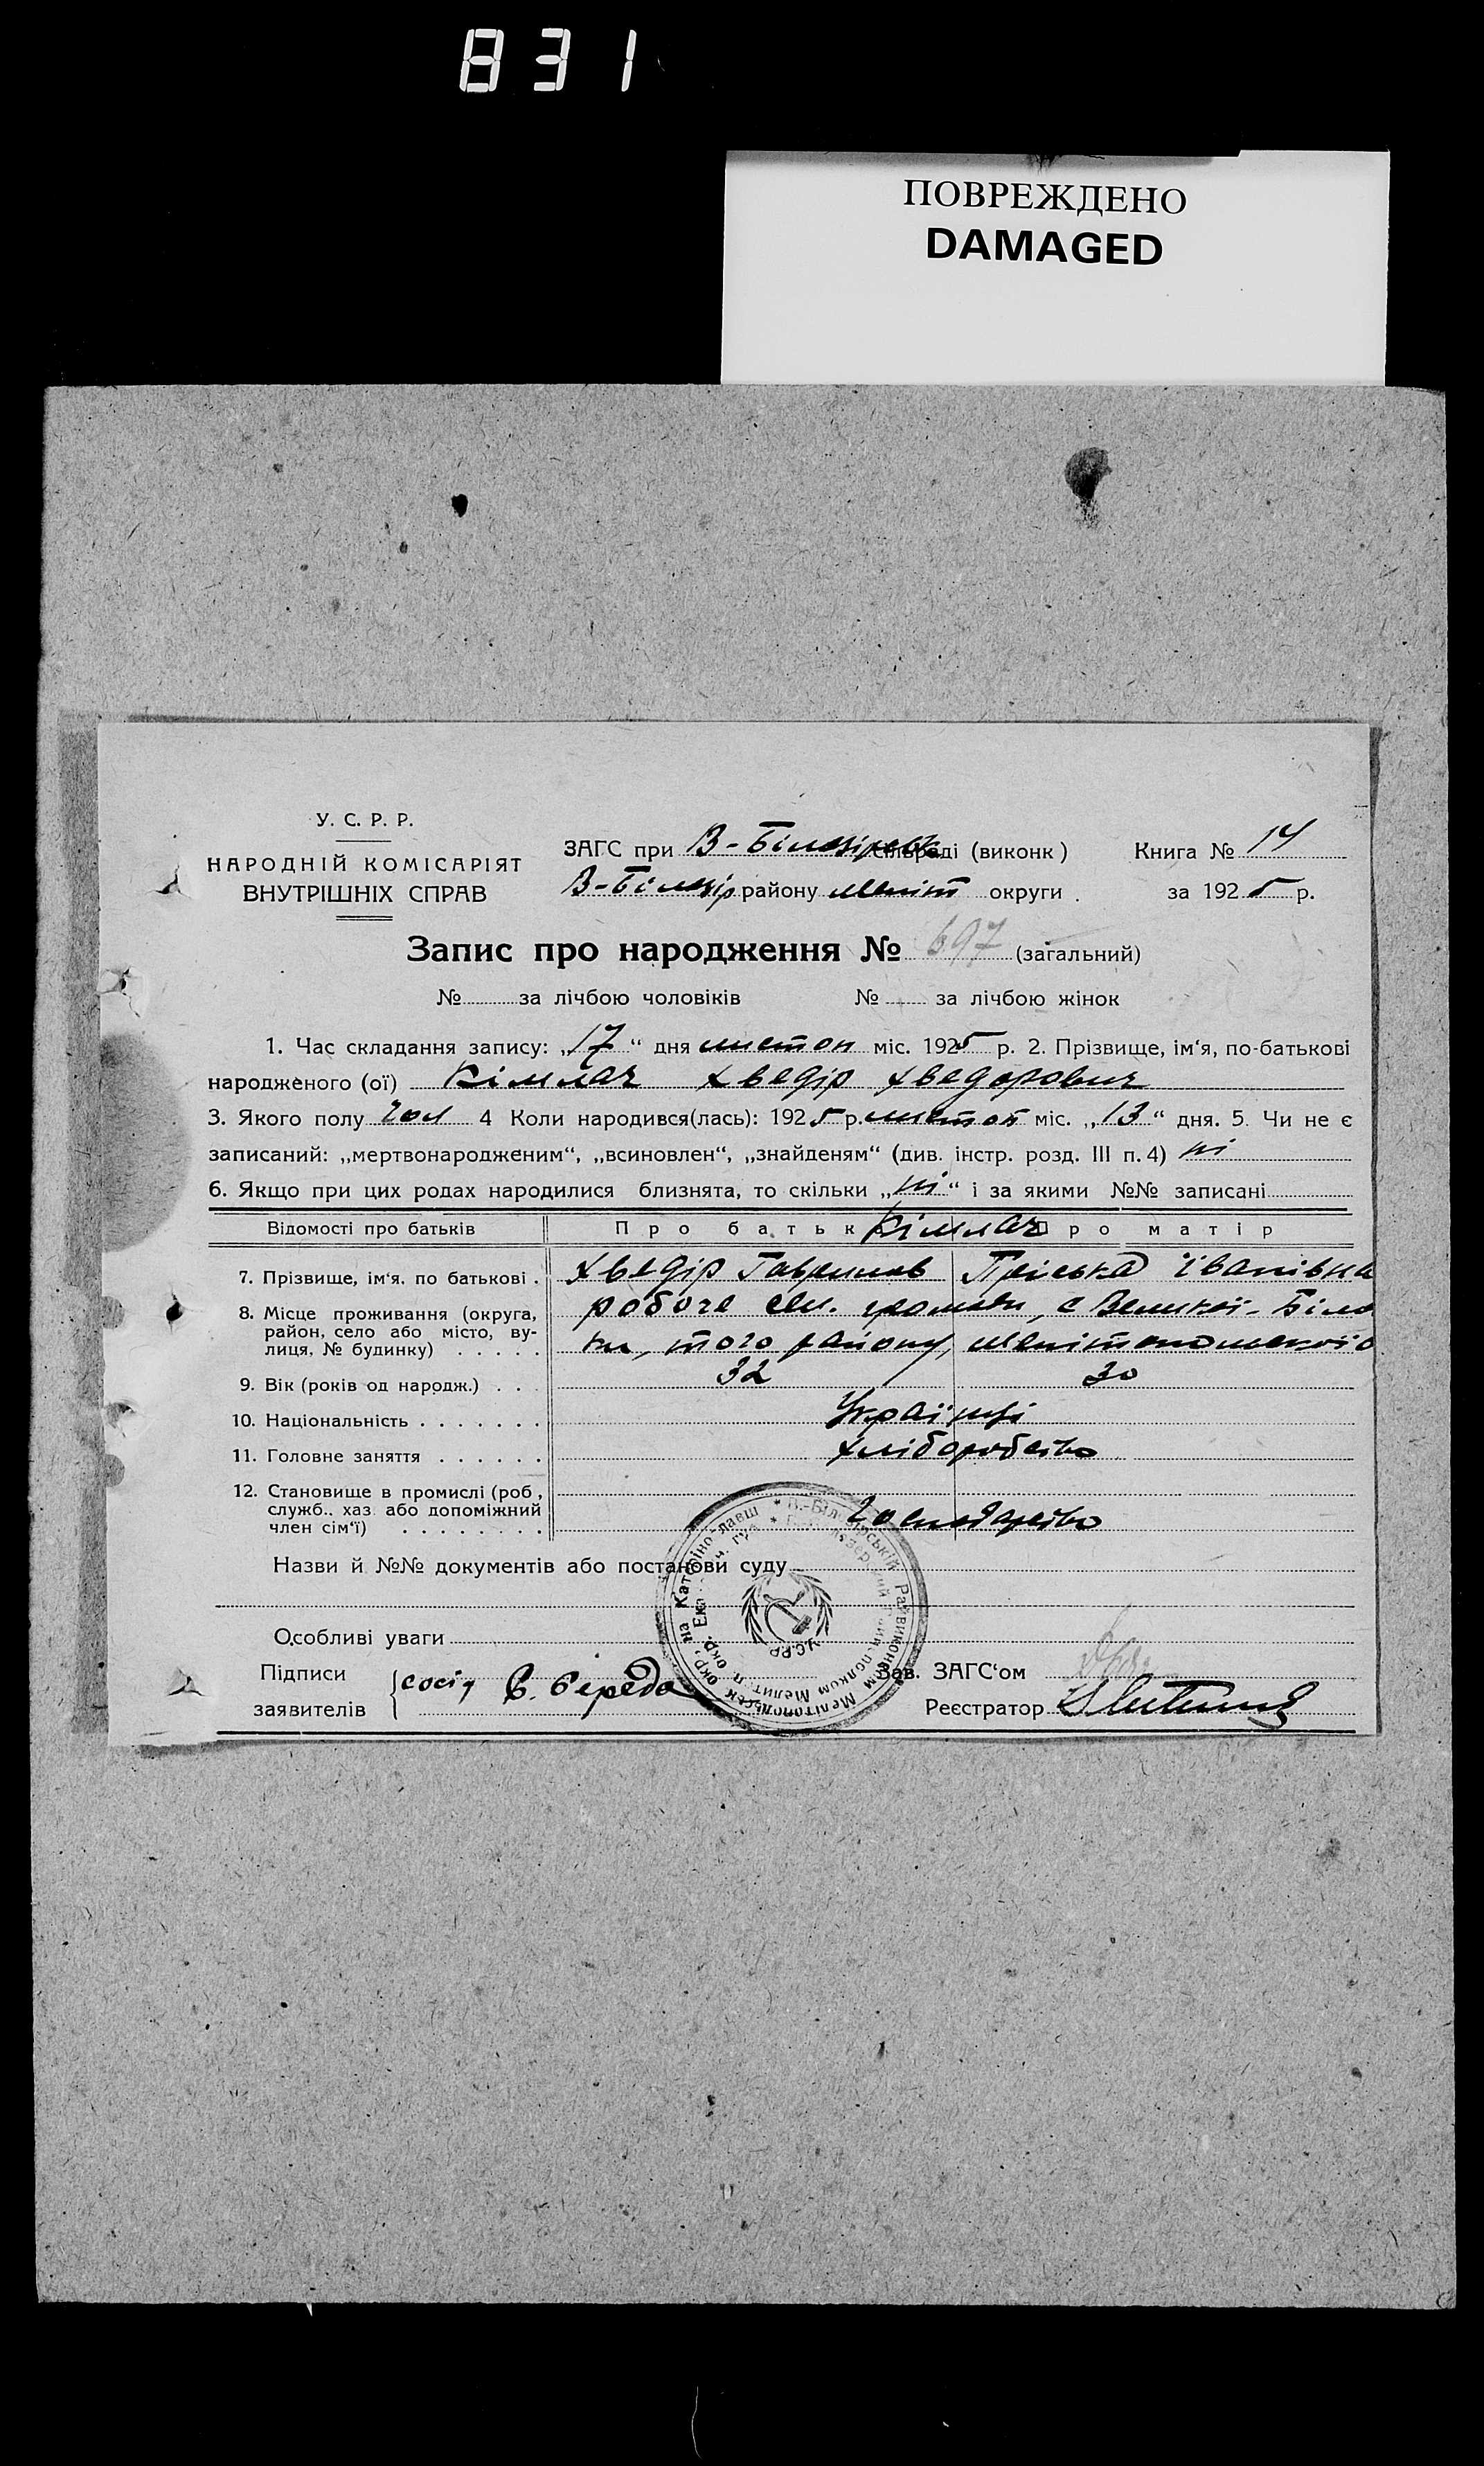 831
ПОВРЕЖДЕНО
DAMAGED
У. С. Р. Р.
НАРОДНІЙ КОМІСАРІЯТ
ВНУТРІШНІХ СПРАВ
ЗАГС при В-Білозірськ сільраді (виконк) Книга № 14
В-Білозір району Меліт округи . за 1925 р.
Запис про народження № 697 (загальний)
№ за лічбою чоловіків № за лічбою жінок
1. Час складання запису: „17“ дня листоп міс. 1925 р. 2. Прізвище, ім‘я, по-батькові
народженого (ої) Кімлач Хведір Хведорович
3. Якого полу чол 4 Коли народився(лась): 1925 р. листоп міс. „13“ дня. 5. Чи не є
записаний: „мертвонародженим“, „всиновлен“, „знайденям“ (див. інстр. розд. III п. 4) ні
6. Якщо при цих родах народилися близнята, то скільки „ні“ і за якими №№ записані
Відомості про батьків Про батька Кімлач Про матір
7. Прізвище, ім‘я. по батькові . Хведір Гаврилов Пріська Іванівна
8. Місце проживання (округа, робоче сел. громади, с Великої-Біло
район, село або місто, ву-
лиця, № будинку) . . . . . ки, того району, Мелітопольської о
9. Вік (років од народж.) . . . 32 30
10. Національність . . . . . . . Українці
11. Головне заняття . . . . . . хліборобство
12. Становище в промислі (роб,
служб.. хаз. або допоміжний
член сім‘ї) . . . . . . . . господарство
Назви й №№ документів або постанови суду
Особливі уваги
Підписи
заявителів
сосід Середа
Зав. ЗАГС‘ом
Реєстратор
У.С.Р.Р.